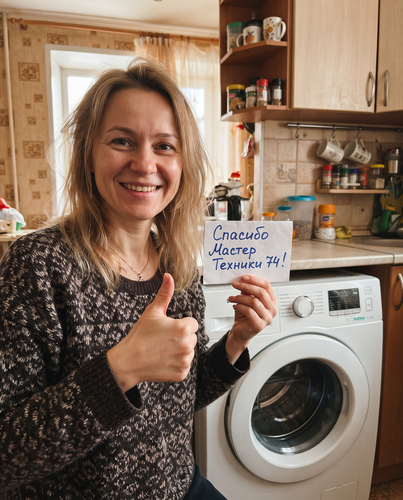 Спасибо
Мастер
Техники 74!